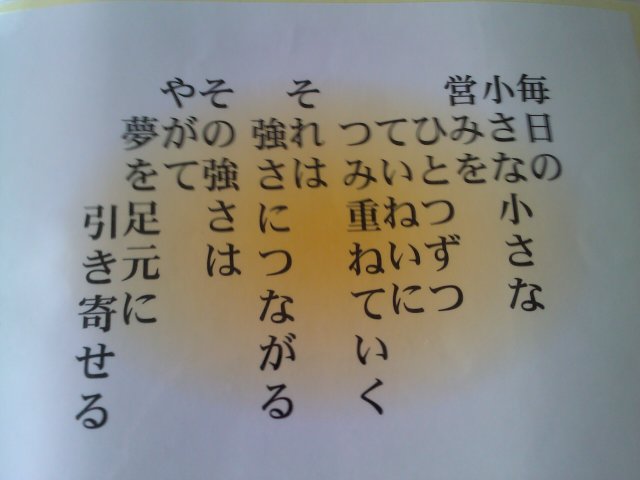 毎日の
小さな小さな
営みを
ひとつずつ
ていねいに
つみ重ねていく
それは
強さにつながる
その強さは
やがて
夢を足元に
引き寄せる